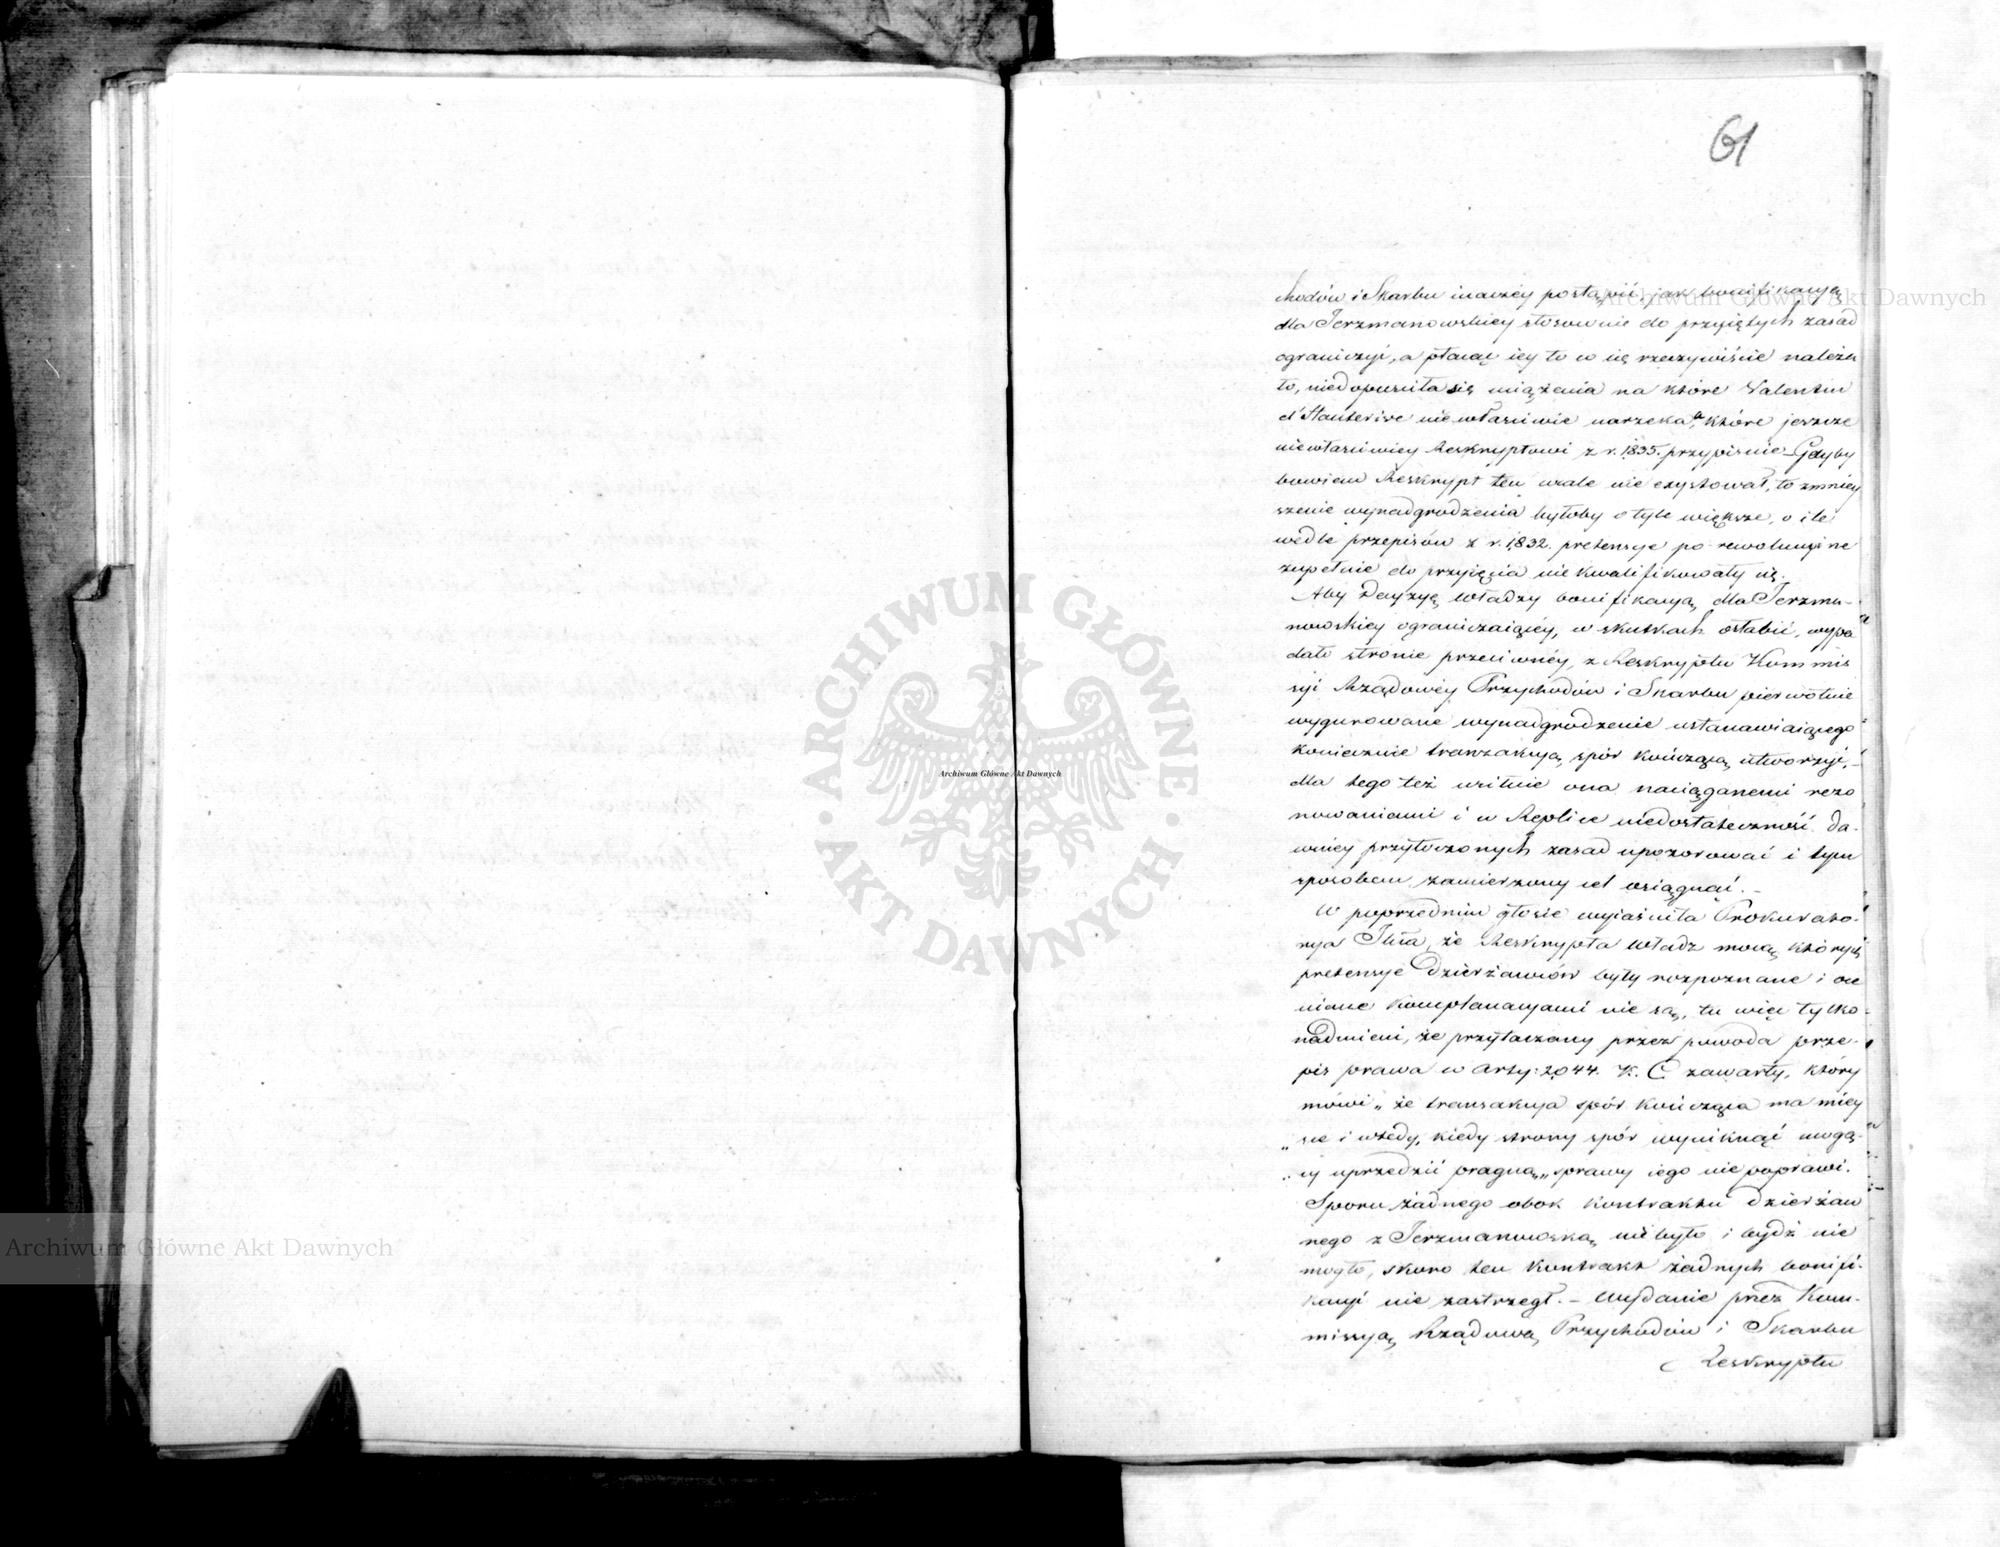 61
chodów i Skarbu inaczéy postąpić, jak bonifikacyą
dla Jerzmanowskiey stosownie do przyiętych zasad
ograniczyć, a płacąc iey to co się rzeczywiście należa
ło, niedopuściła się uciążenia na które Valentin
d'Hauterive niewłaściwie narzeka, a które jeszcze
niewłaściwiey Reskryptowi z r. 1835. przypisuie. Gdyby
bowiem Reskrypt ten wcale nie exystował, to zmniey
szenie wynadgrodzenia byłoby o tyle większe, o ile
wedle przepisów z r. 1832. pretensye po rewolucyine
zupełnie do przyięcia nie kwalifikowały się.
Aby Decyzyę Władzy bonifikacyą dla Jerzma-
nowskiey ograniczaiącéy, w skutkach osłabić, wypa
dało stronie przeciwnéy, z Reskryptu Kommis
syi Rządowéy Przychodów i Skarbu pierwotnie
wygurowane wynadgrodzenie ustanawiaiącego
koniecznie tranzakcyą spór kończącą utworzyć, -
dla tego też usilnie ona naciąganemi rezo
nowaniami i w Replice niedostateczność da-
wniey przytoczonych zasad upozorować i tym
sposobem zamierzony cel osiągnąć. -
W poprzednim głosie wyiaśniła Prokurato-
rya Jlna, że Reskrypta Władz mocą których
pretensye Dzierżawców były rozpoznane i oce
niane komplanacyami nie są, tu więc tylko
nadmieni, że przytaczany przez powoda prze-
pis prawa w Arty: 2044. K. C zawarty, który
mówi „że transakcya spór kończąca ma miey
„sce i wtedy, kiedy strony spór wyniknąć mogą-
„cy uprzedzić pragną" sprawy iego nie poprawi.
Sporu żadnego obok kontraktu dzierżaw
nego z Jerzmanowską nie było i bydź nie
mogło, skoro ten kontrakt żadnych bonifi-
kacyi nie zastrzegł. - Wydanie przez Kom-
missyą Rządową Przychodów i Skarbu
Reskryptu
Archiwum Główne Akt Dawnych
Archiwum Główne Akt Dawnych
Archiwum Główne Akt Dawnych
ARCHIWUM GŁÓWNE · AKT DAWNYCH ·